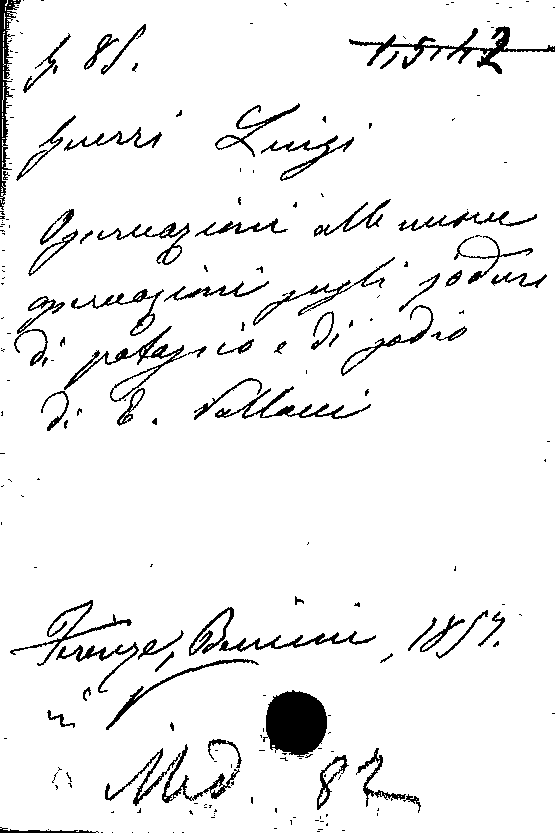 G. 85. 1,5.4,2
Guerri Luigi
Osservazioni alle nuove
osservazioni sugli joduri
di potassio e di jodio
di E. Pollacci
Firenze, Bencini, 1857.
in
Med. 82